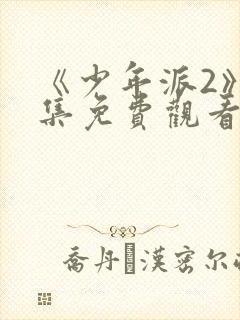 《少年派2》
集免費觀看
喬丹漢密尔